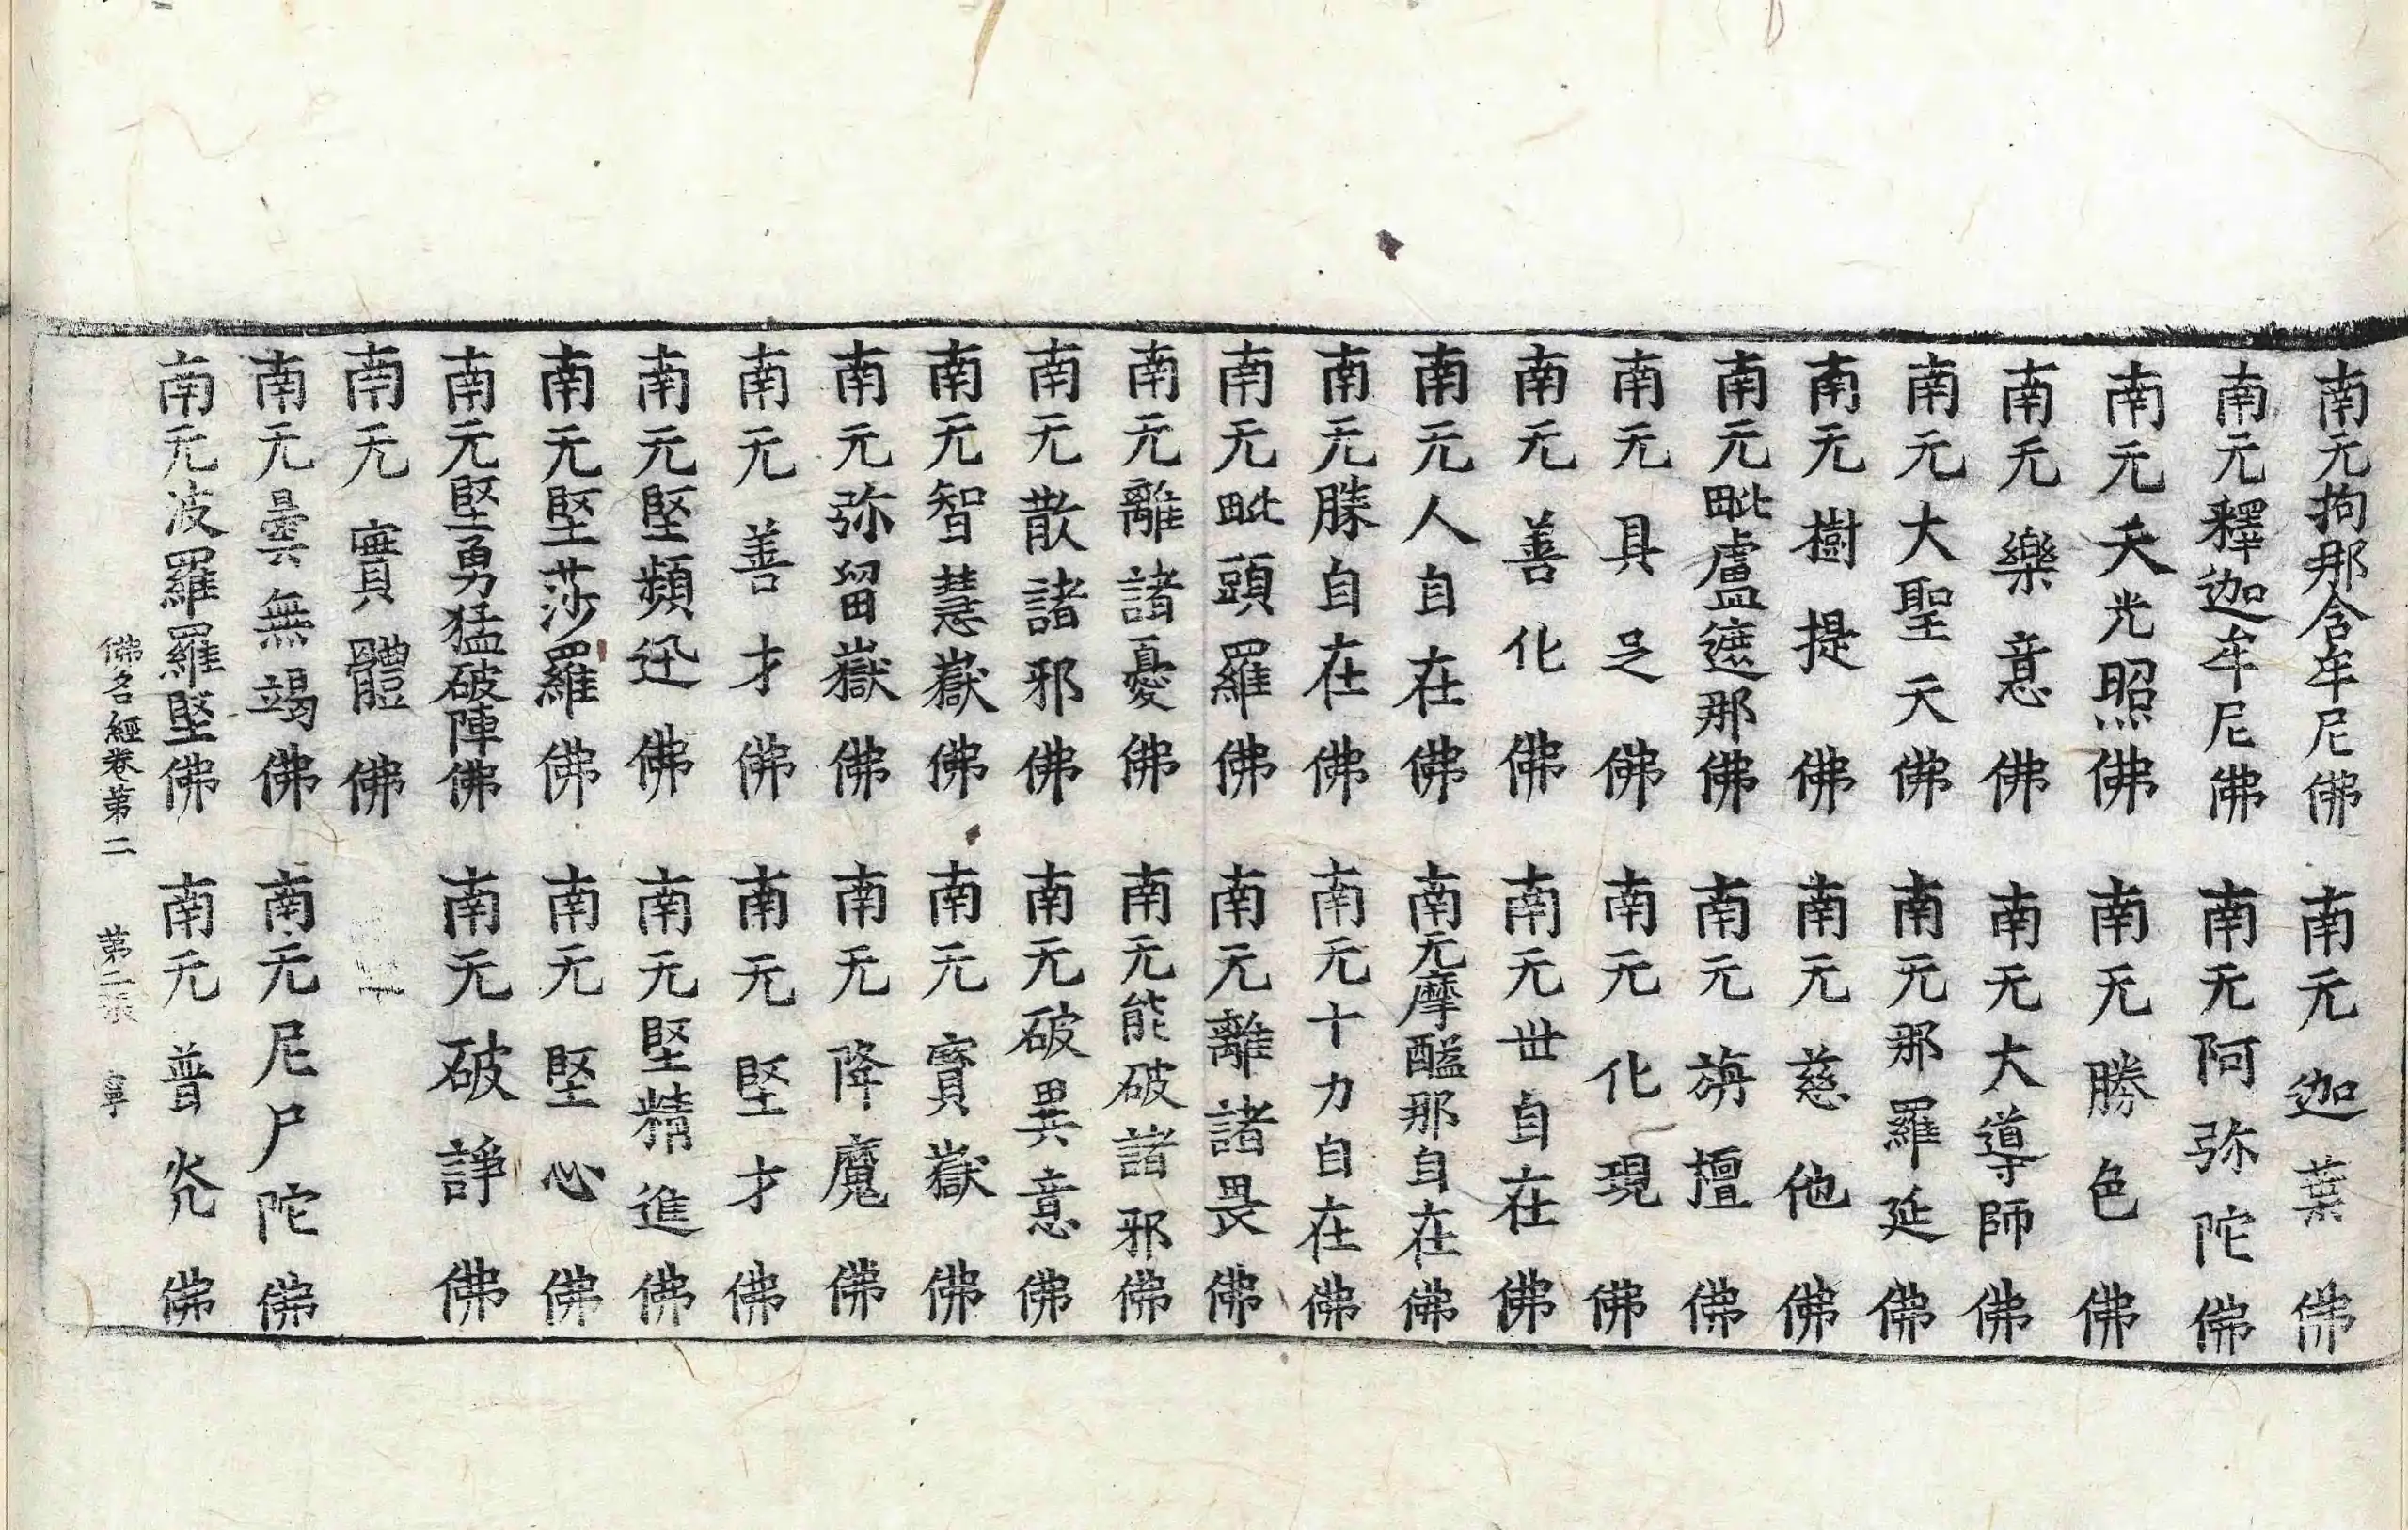 南无拘那含牟尼佛　南无迦葉佛
南无釋迦牟尼佛　南无阿弥陀佛
南无天光照佛　南无勝色佛
南无樂意佛　南无大導師佛
南无大聖天佛　南无那羅延佛
南无樹提佛　南无慈他佛
南无毗盧遮那佛　南无旃檀佛
南无具足佛　南无化現佛
南无善化佛　南无世自在佛
南无人自在佛　南无摩醯那自在佛
南无勝自在佛　南无十力自在佛
南无毗頭羅佛　南无離諸畏佛
南无離諸憂佛　南无能破諸邪佛
南无散諸邪佛　南无破異意佛
南无智慧嶽佛　南无實嶽佛
南无弥留嶽佛　南无降魔佛
南无善才佛　南无堅才佛
南无堅頻迅佛　南无堅精進佛
南无堅莎羅佛　南无堅心佛
南无堅勇猛破陣佛　南无破諍佛
南无實體佛
南无曇無竭佛　南无尼尸陀佛
南无波羅羅堅佛　南无普灮佛
佛名經卷第二　第二張　寧